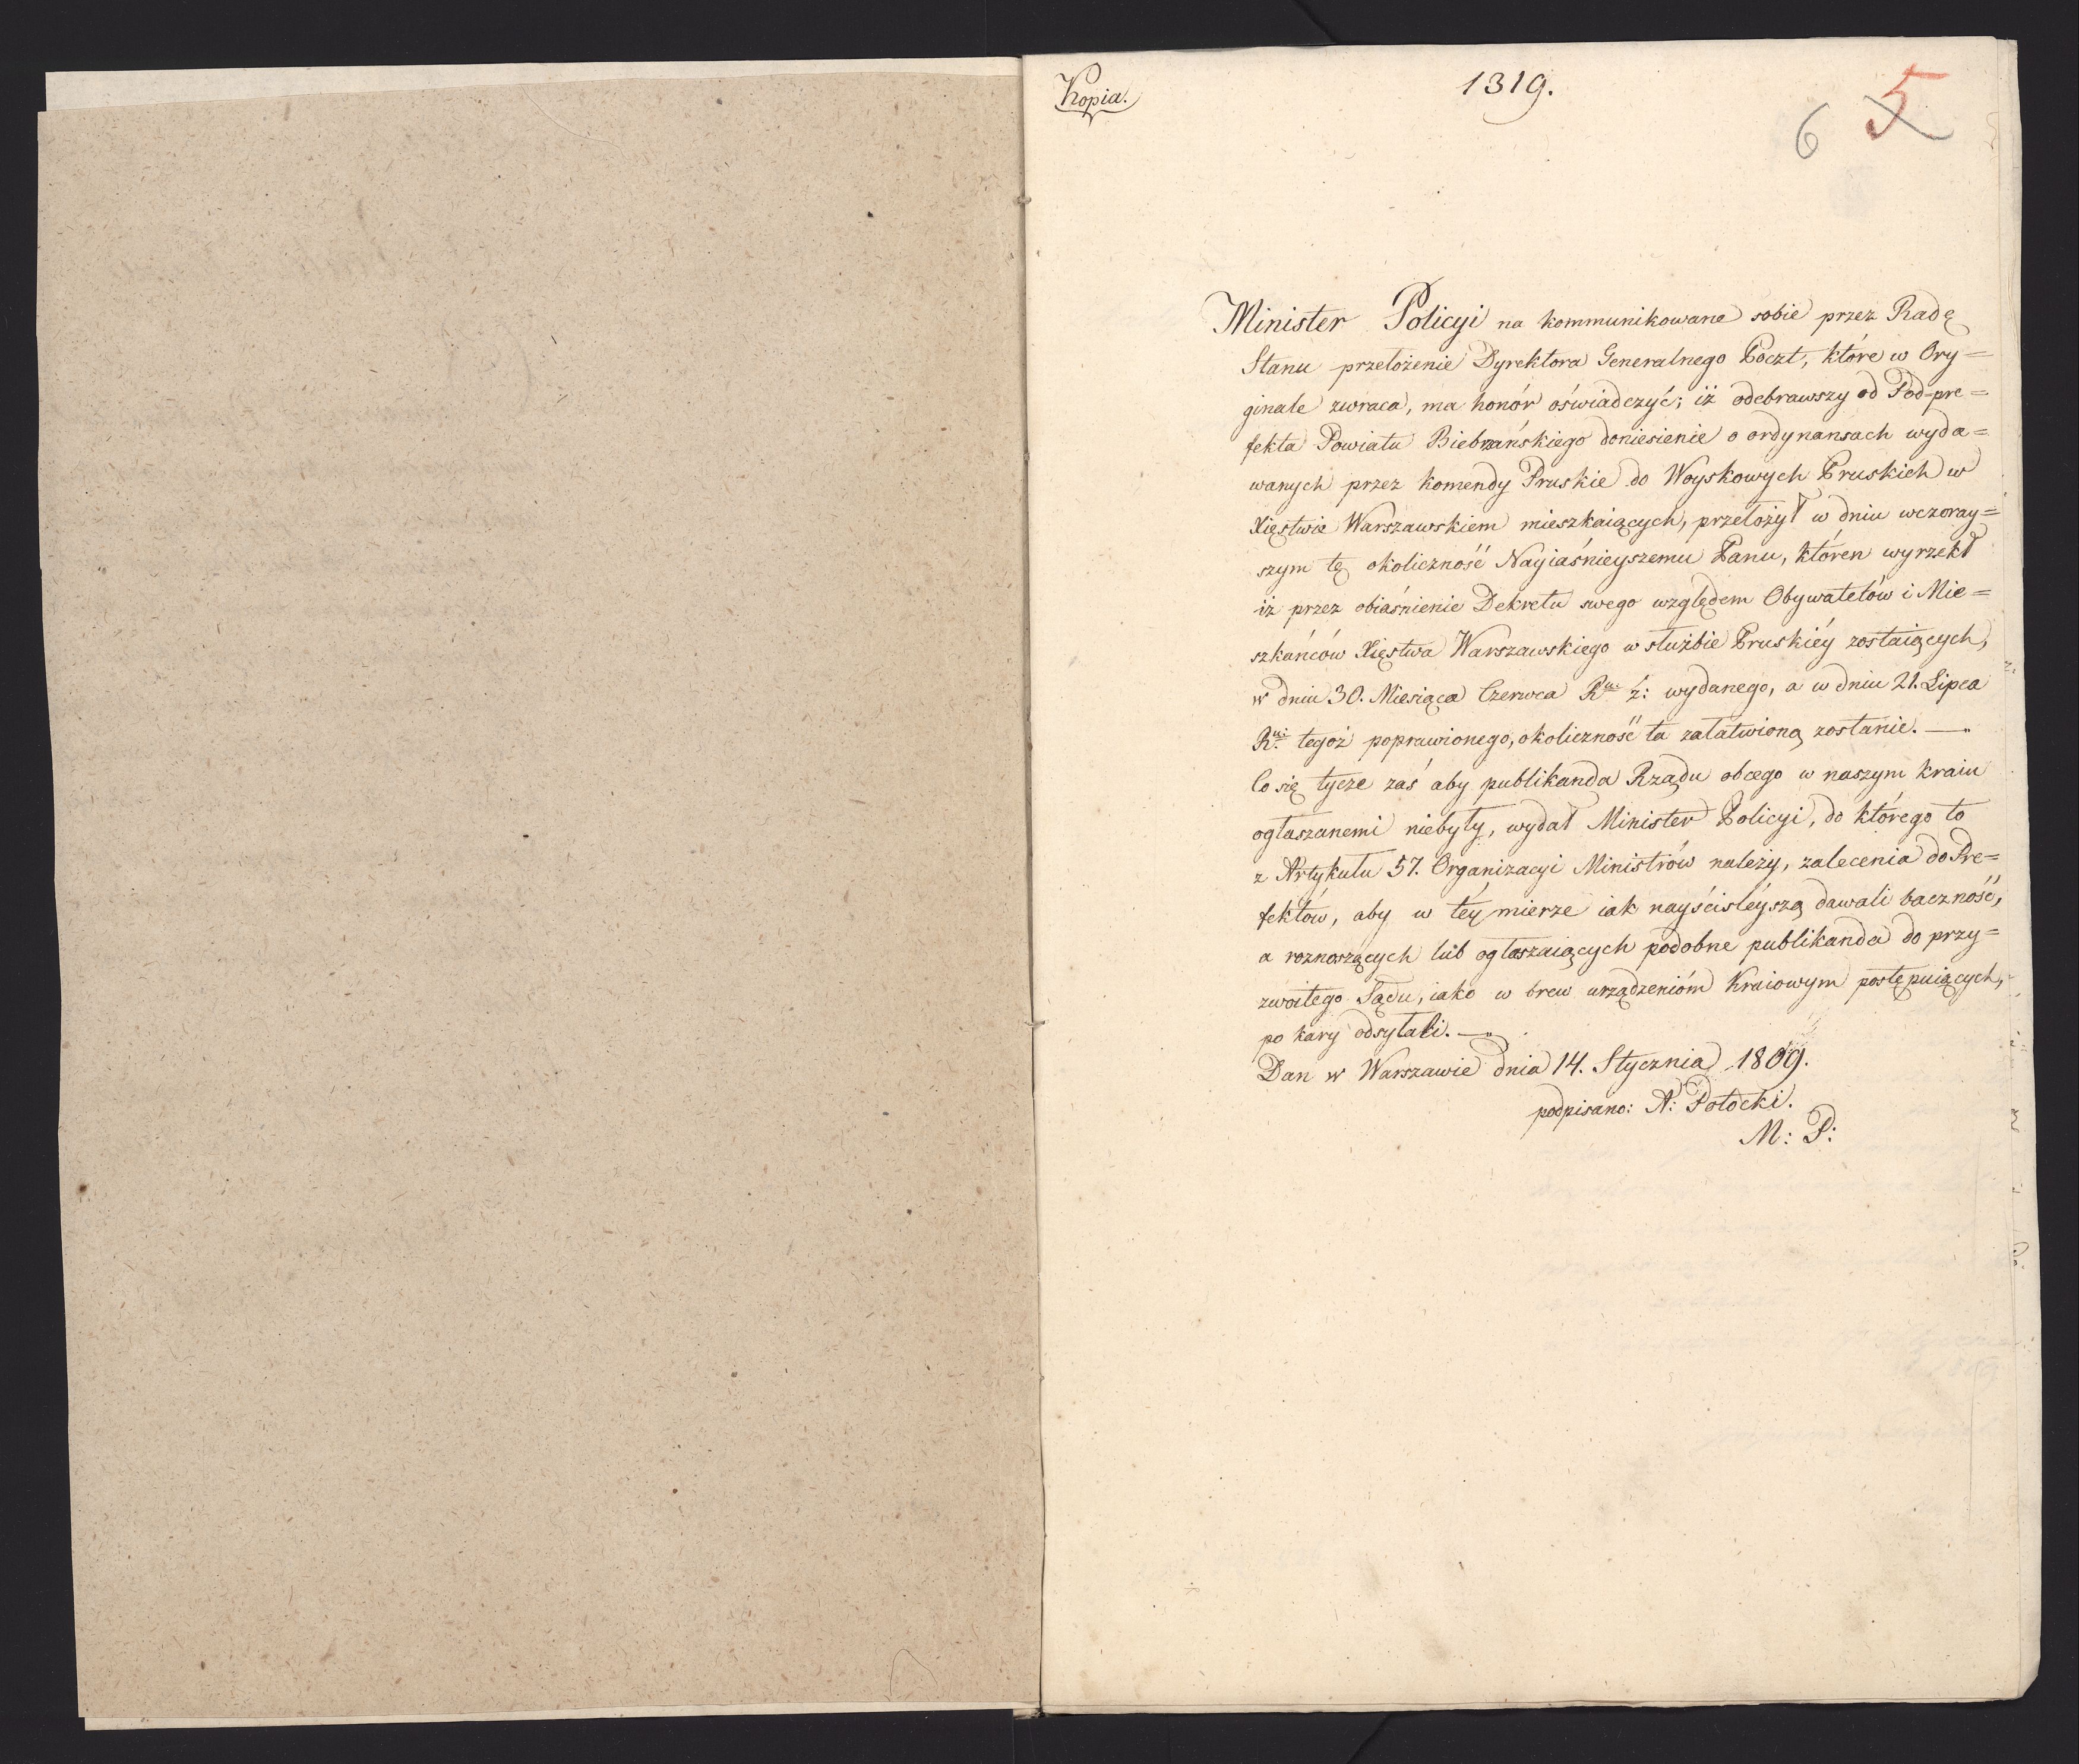 Kopia.
1319.
6 5
Minister Policyi na kommunikowane sobie przez Radę
Stanu przełożenie Dyrektora Generalnego Poczt, które w Ory=
ginale zwraca, ma honór oświadczyć; iż odebrawszy od Pod=pre=
fekta Powiatu Biebrzańskiego doniesienie o ordynansach wyda=
wanych przez komendy Pruskie do Woyskowych Pruskich w
Xięstwie Warszawskiem mieszkaiących, przełożył w dniu wczoray=
szym tę okoliczność Nayiaśnieyszemu Panu, któren wyrzekł
iż przez obiaśnienie Dekretu swego względem Obywatelów i Mie=
szkańców Xięstwa Warszawskiego w służbie Pruskiéy zostaiących,
w dniu 30. Miesiąca Czerwca Ru: z: wydanego, a w dniu 21. Lipca
Ru: tegoż poprawionego, okoliczność ta załatwioną zostanie. —
Co się tycze zaś aby publikanda Rządu obcego w naszym kraiu
ogłaszanemi niebyły, wydał Minister Policyi, do którego to
z Artykułu 57. Organizacyi Ministrów należy, zalecenia do Pre=
fektów, aby w téy mierze iak nayściśléyszą dawali baczność,
a roznoszących lub ogłaszaiących podobne publikanda do przy=
zwoitego Sądu, iako w brew urządzenióm Kraiowym postępuiących,
po kary odsyłali. —
Dan w Warszawie dnia 14. Stycznia 1809.
podpisano: A: Potocki.
M: P: